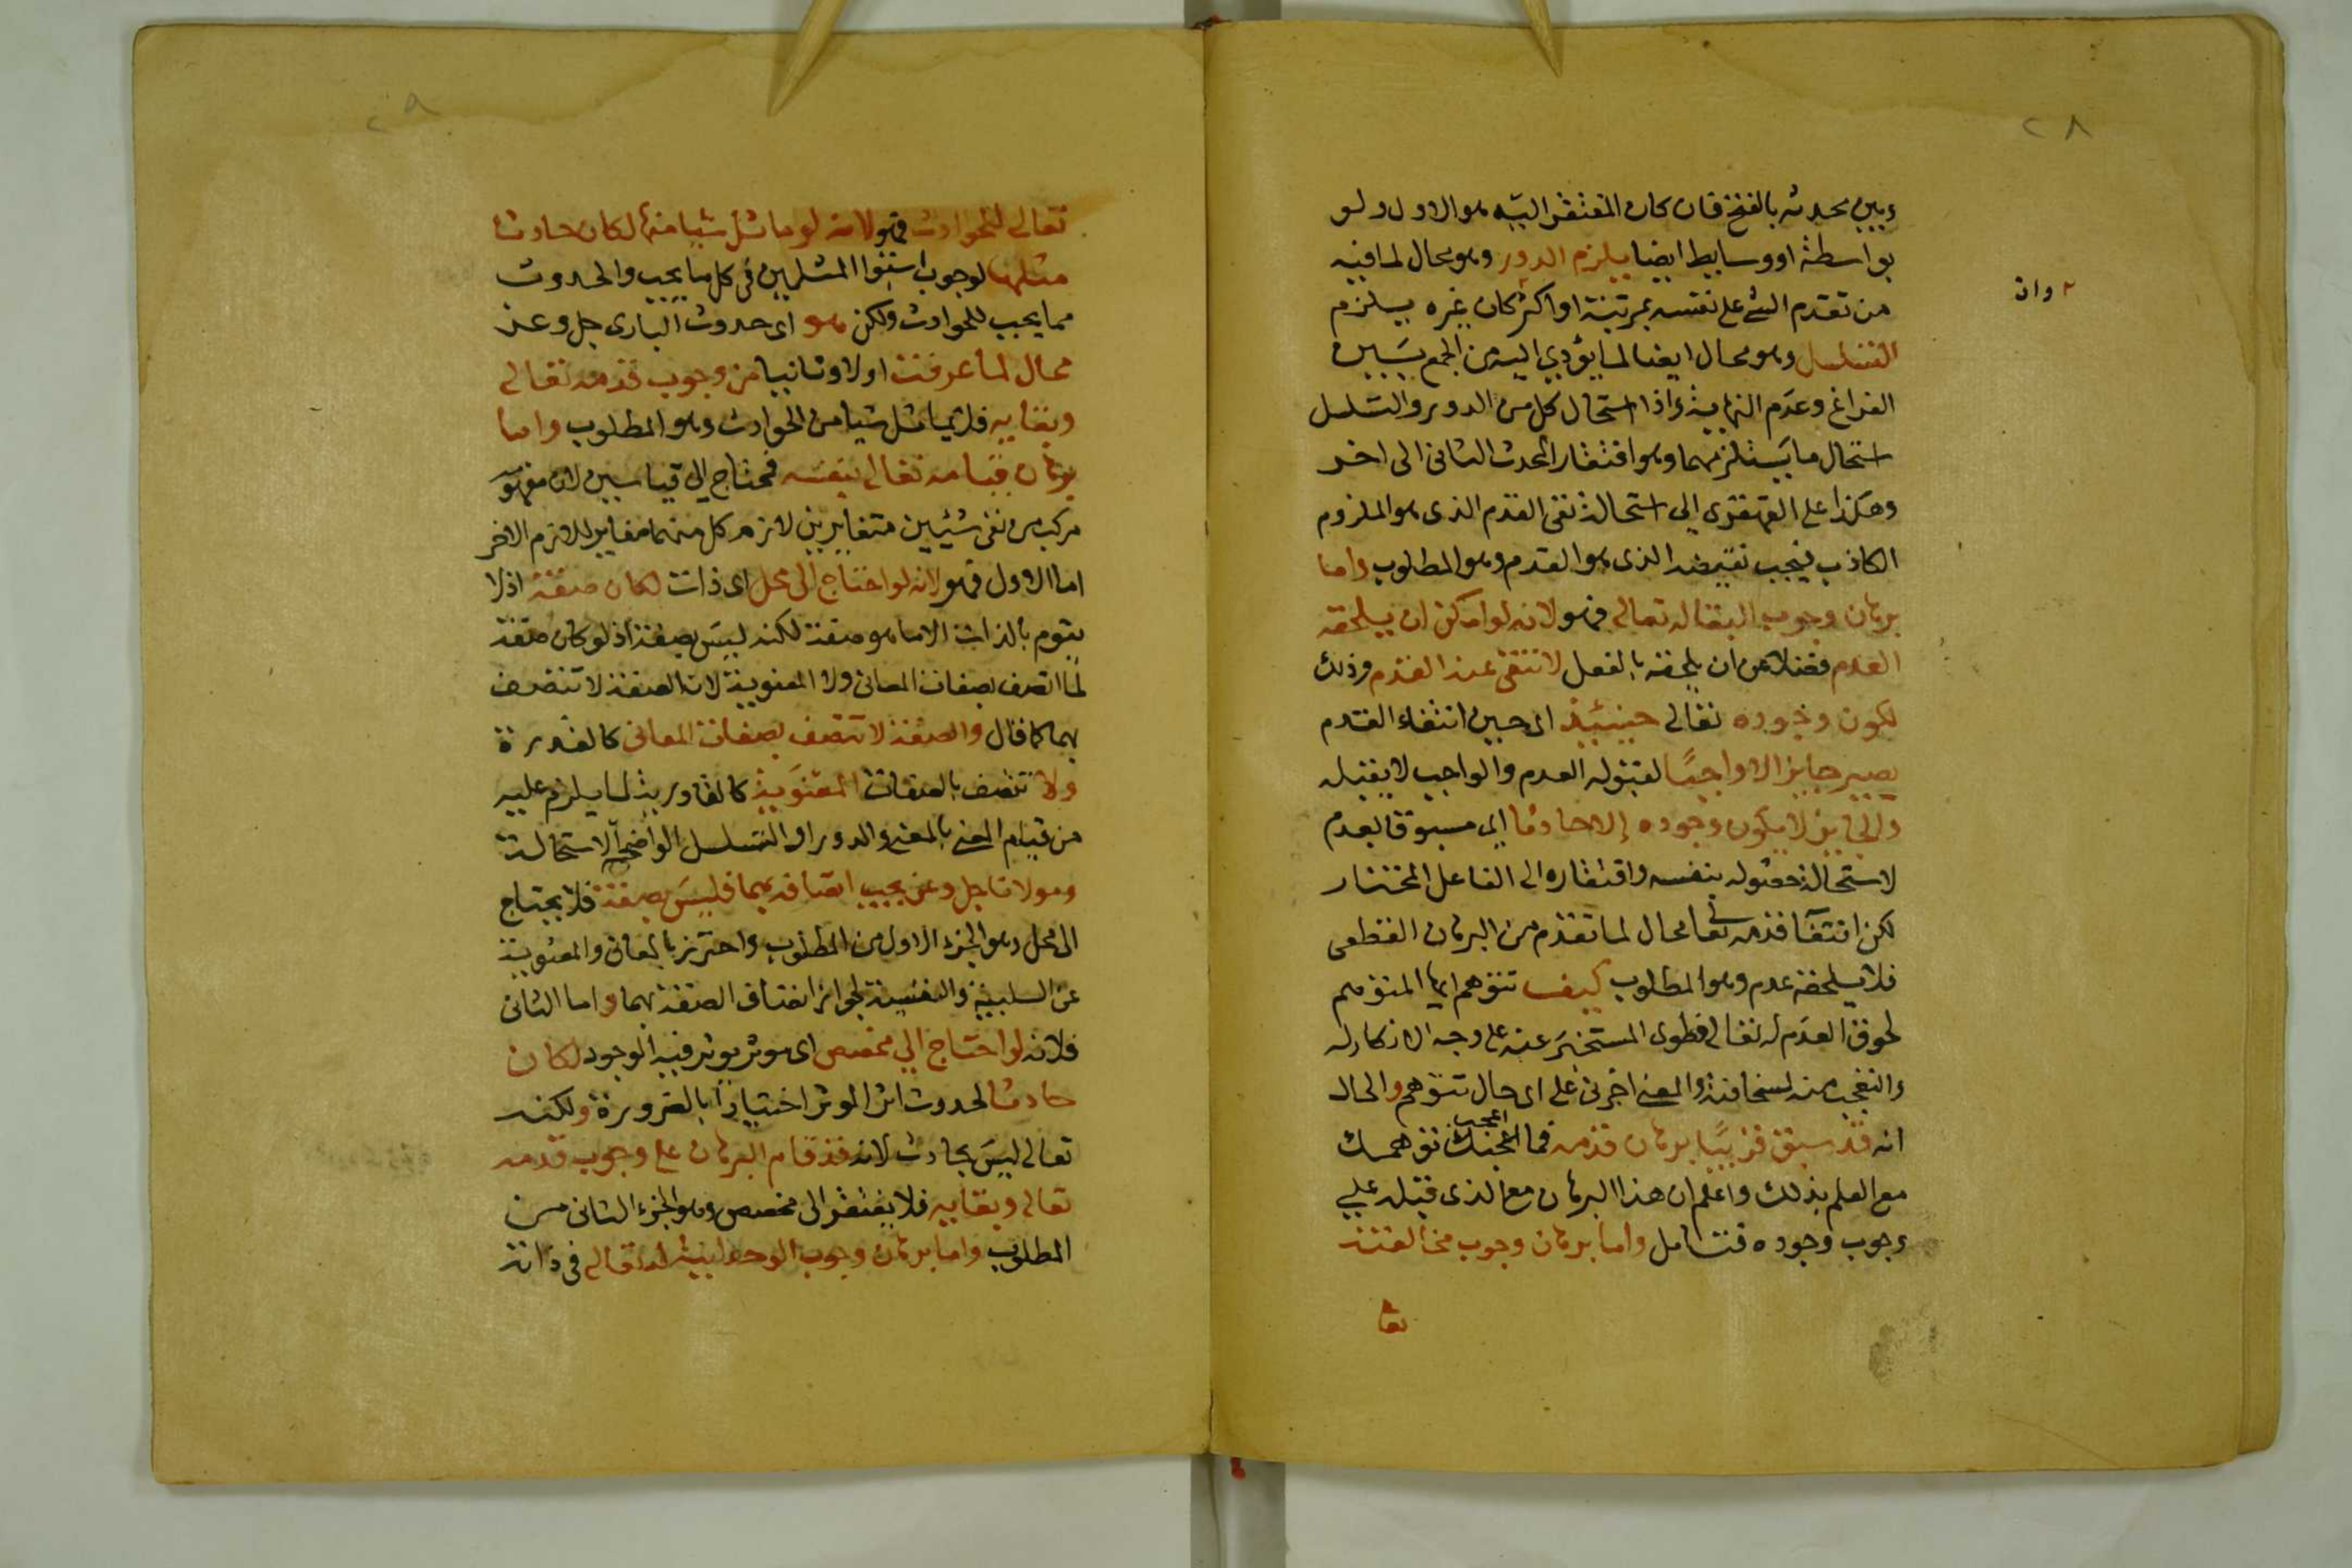 ٢٨
وبين محدثه بالفتح فان كان المفتقر اليه هو الاول ولو
بواسطة او وسايط ايضا يلزم الدور وهو محال لما فيه
من تقدم الشى على نفسه بمرتبة او اكثر كان غيره يلزم
٢ وان
التسلسل وهو محال ايضا لما يؤدي اليه من الجمع بين
الفراغ وعدم النهاية واذا استحال كل من الدور والتسلسل
استحال ما يستلزمهما وهو افتقار المحدث الثانى الى اخر
وهكذا على القهقرى الى استحالة نفى القدم الذى هو الملزوم
الكاذب فيجب نقيضه الذى هو القدم وهو المطلوب واما
برهان وجوب البقا له تعالى فهو لانه لو امكن ان يلحقه
العدم فضلا عن ان يلحقه بالفعل لانتفى عنه القدم وذلك
لكون وجوده تعالى حينيئذ اى حين انتفاء القدم
يصير جايزا لا واجبًا لقبوله العدم والواجب لا يقبله
والجايز لا يكون وجوده إلا حادثا اى مسبوقا بعدم
لاستحالة حصوله بنفسه وافتقاره الى الفاعل المختار
لكن انتفآ قدمه تعا محال لما تقدم من البرهان القطعى
فلا يلحقه عدم وهو المطلوب كيف تتوهم ايها المتوهم
لحوق العدم له تعالى فطوى المستخبر عنه على وجه الانكار له
والتعجب منه لسخافته والمعنى اخبرنى على اى حال تتوهم والحال
انه قد سبق قريبًا برهان قدمه فما اعجبك اعجب توهمك
مع العلم بذلك واعلم ان هذا البرهان مع الذى قبله على
وجوب وجوده فتامل واما برهان وجوب مخالفته
تعا
٢٩
تعالى للحوادث فهو لانه لو ماثل شيا منها لكان حادثا
مثلها لوجوب استوا المثلين فى كل ما يجب والحدوث
مما يجب للحوادث ولكن هو اى حدوث البارى جل وعز
محال لما عرفت اولا وثانيا من وجوب قدمه تعالى
وبقايه فلا يماثل شيا من الحوادث وهو المطلوب واما
برهان قيامه تعالى بنفسه فمحتاج الى قياسين لان مفهومه
مركب من نفى شيئين متغايرين لازم كل منهما مغاير للازم الاخر
اما الاول فهو لانه لو احتاج الى محل اى ذات لكان صفة اذ لا
يقوم بالذات الا ما هو صفة لكنه ليس بصفة اذ لو كان صفة
لما اتصف بصفات المعانى ولا المعنوية لان الصفة لا تتصف
بهما كما قال والصفة لا تتصف بصفات المعانى كالقدرة
ولا تتصف بالصفات المعنوية كالقادرية لما يلزم عليه
من قيام المعنى بالمعنى والدور او التسلسل الواضحى الاستحالة
ومولانا جل وعز يجب اتصافه بهما فليس بصفة فلا يحتاج
الى محل وهو الجزء الاول من المطلوب واحترز بالمعانى والمعنوية
عن السلبية والنفسية لجواز اتصاف الصفة بهما واما الثانى
فلانه لو احتاج الى مخصص اى موثر يوثر فيه الوجود لكان
حادثا لحدوث اثر الموثر اختيارا بالضرورة ولكنه
تعالى ليس بحادث لانه قد قام البرهان على وجوب قدمه
تعالى وبقايه فلا يفتقر الى مخصص وهو الجزء الثانى من
المطلوب واما برهان وجوب الوحدانية له تعالى فى ذاته